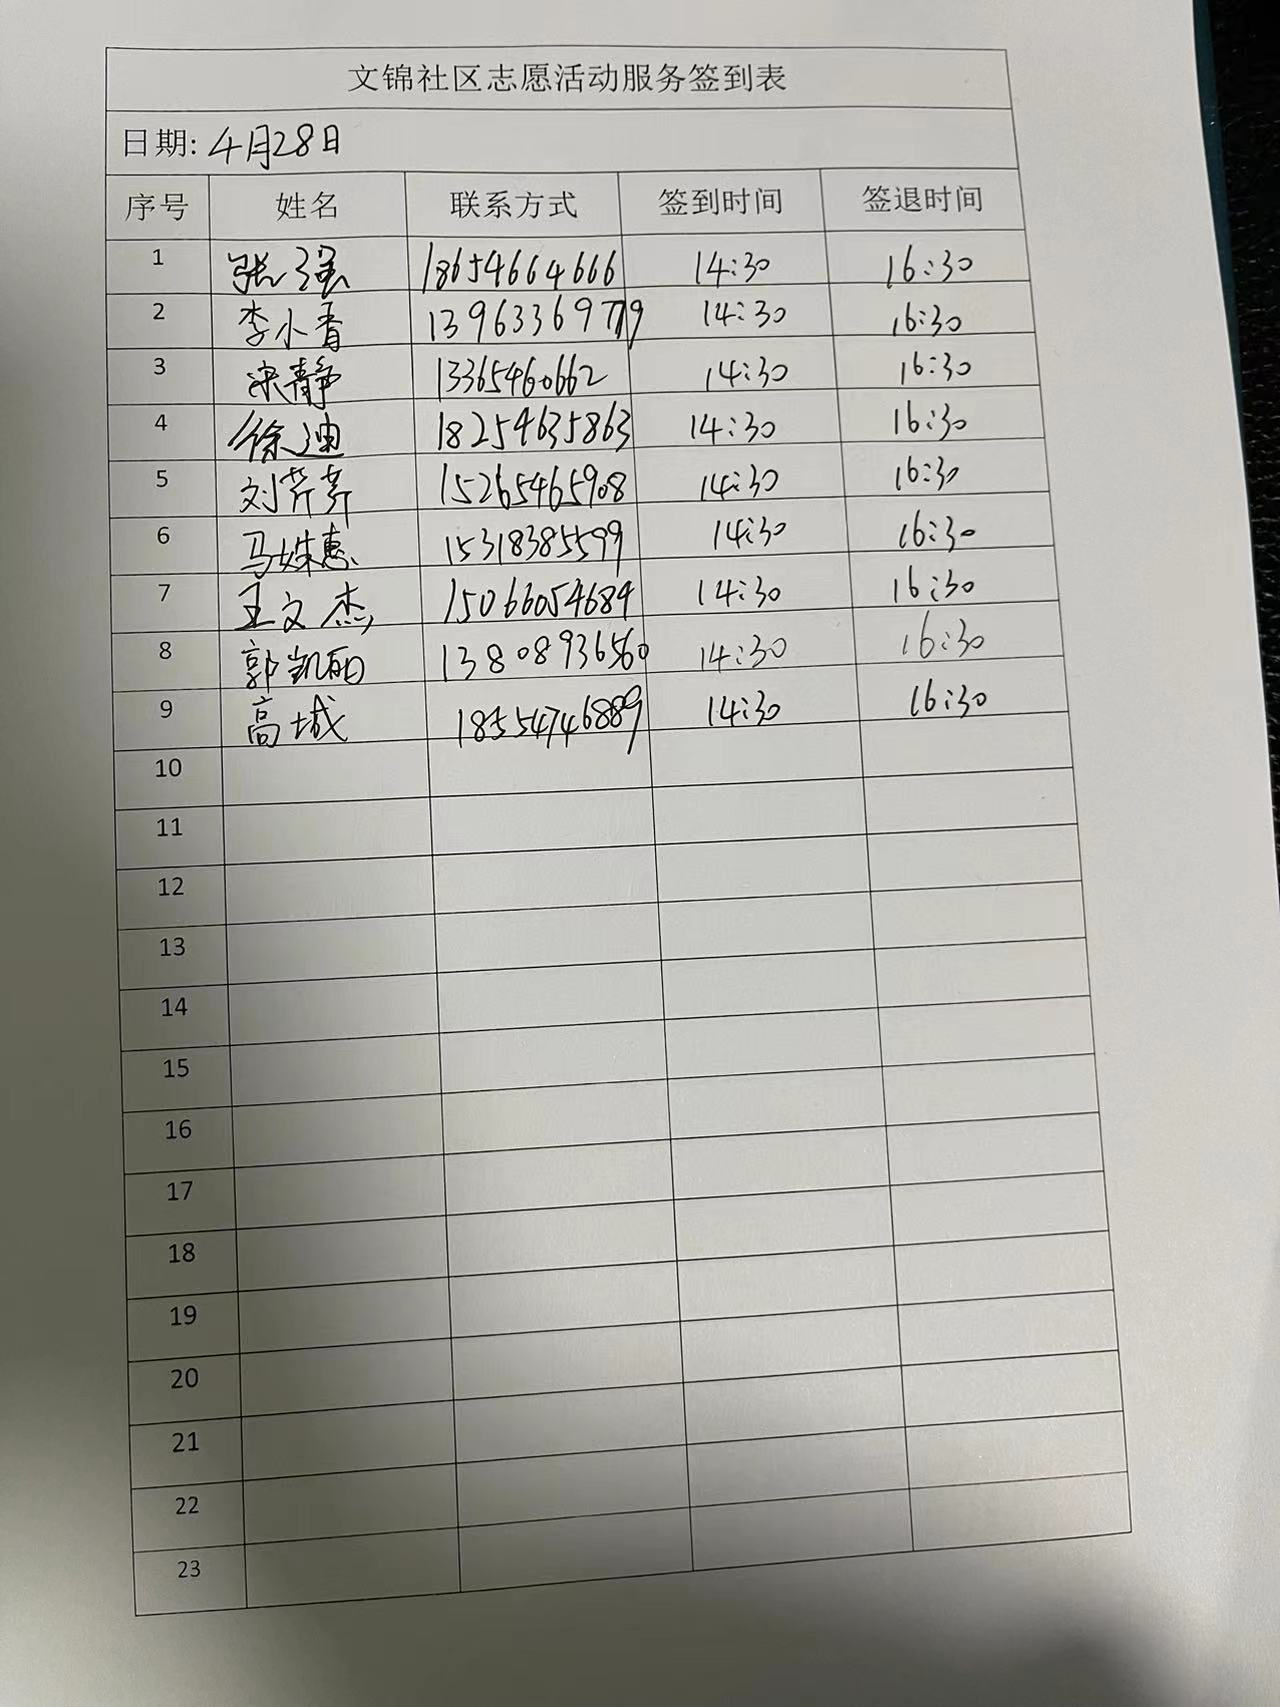 文锦社区志愿活动服务签到表
日期: 4月28日
序号 姓名 联系方式 签到时间 签退时间
1 张强 18654664666 14:30 16:30
2 李小香 14:30 16:30
3 宋静 13365460662 14:30 16:30
4 徐迪 18254635863 14:30 16:30
5 刘芹芹 15265465908 14:30 16:30
6 马姝惠 15318385599 14:30 16:30
7 王文杰 15066054684 14:30 16:30
8 郭凯丽 13808936560 14:30 16:30
9 高城 18554746889 14:30 16:30
10
11
12
13
14
15
16
17
18
19
20
21
22
23